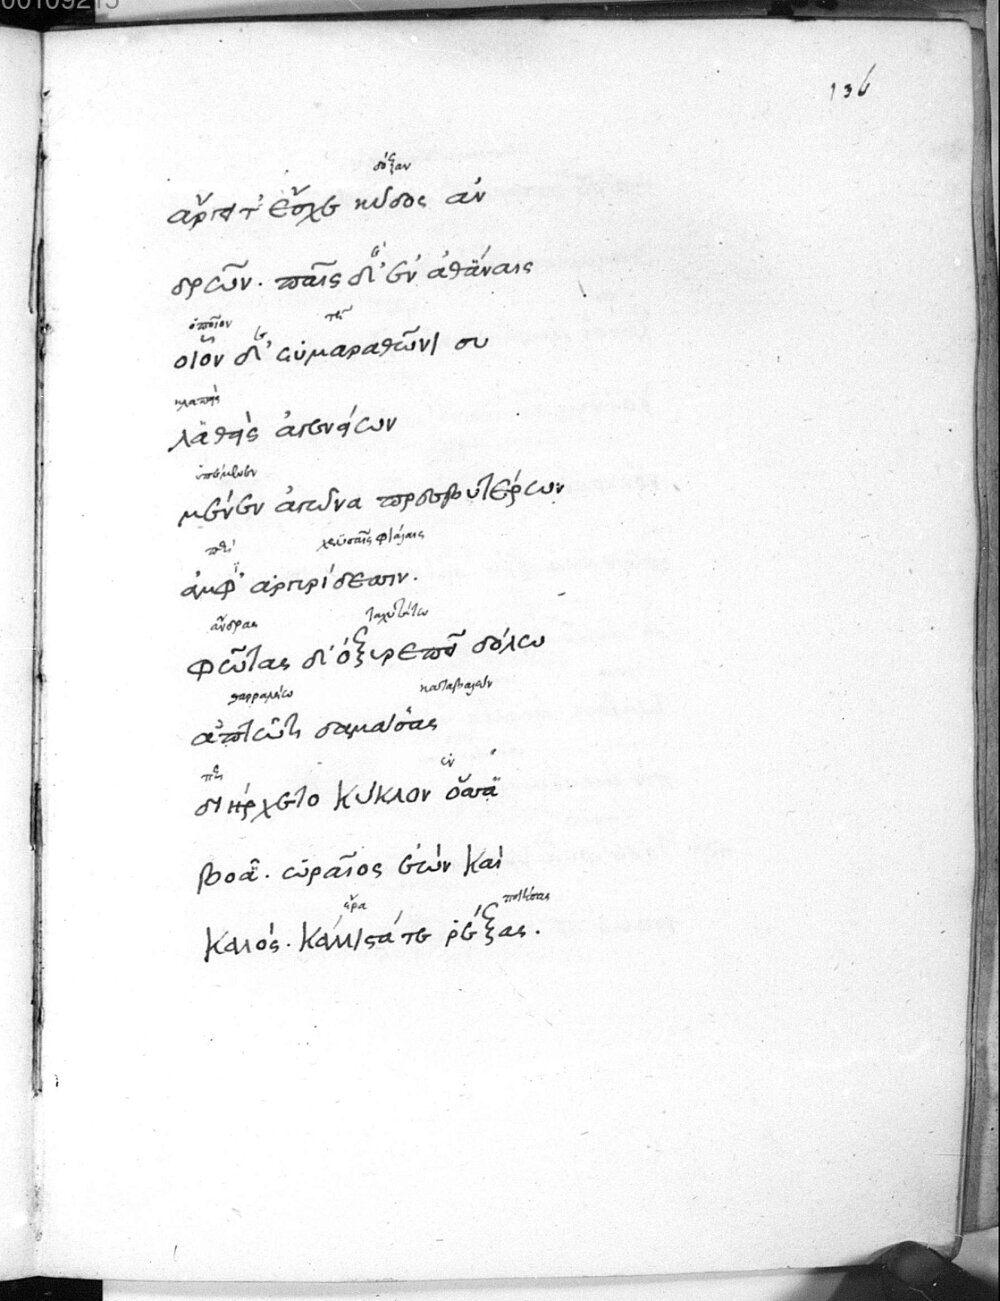 00109215
136
δόξαν
ἄργει τ' ἔσχε κῦδος ἀν
δρῶν. παῖς δ' ἐν ἀθάναις
ὁποῖον τῇ
οἷον δ' ἐν μαραθῶνι συ
λαθεὶς ἀγενείων
ὑπέμεινεν
μένεν ἀγῶνα πρεσβυτέρων
περὶ χρυσαῖς φιάλαις
ἀμφ' ἀργυρίδεσσιν.
ἄνδρας ταχυτάτω
φῶτας δ' ὀξυρεπεῖ δόλω
καταβαλὼν
ἀπτῶτι δαμάσας
ἐν
διήρχετο κύκλον ὅσσᾳ
βοᾷ. ὡραῖος ἐὼν καὶ
ποιήσας
καλός. κάλλιστά τε ῥέξας.